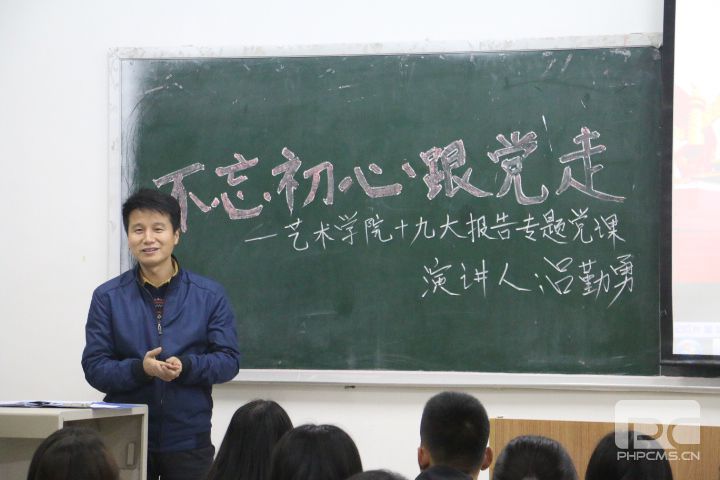 不忘初心·跟党走
—艺术学院十九大报告专题党课
演讲人:吕勤勇
PHPCMS.CN